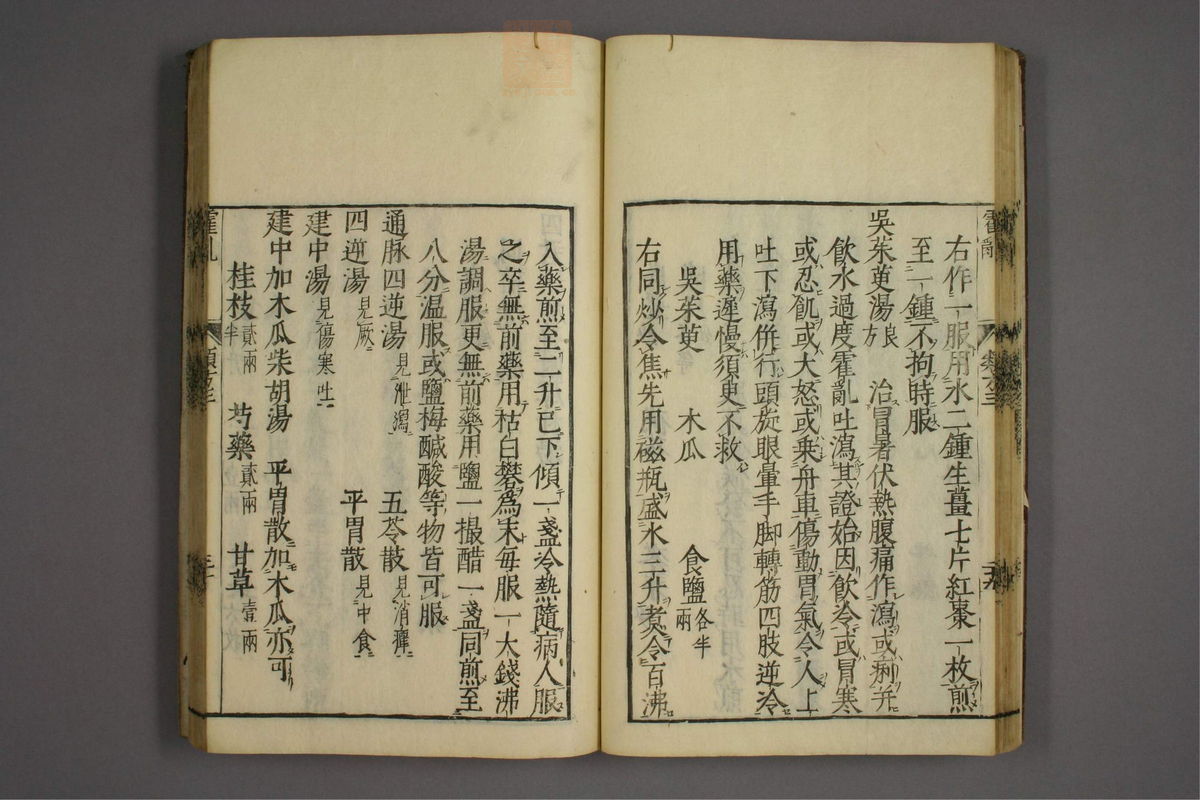 霍亂
右作一服用水二鍾生薑七片紅棗一枚煎
至一鍾不拘時服
吳茱萸湯良方 治冒暑伏熱腹痛作瀉或痢并
飲水過度霍亂吐瀉其證始因飲冷或冒寒
或忍飢或大怒或乗舟車傷動胃氣令人上
吐下瀉併行頭旋眼暈手脚轉筋四肢逆冷
用藥遲慢須臾不救
吳茱萸 木瓜 食鹽各半兩
右同炒令焦先用磁瓶盛水三升煮令百沸
入藥煎至二升已下傾一盞冷熱隨病人服
之卒無前藥用枯白礬爲末毎服一大錢沸
湯調服更無前藥用鹽一撮醋一盞同煎至
八分温服或鹽梅醎酸等物皆可服
通脉四逆湯見泄瀉 五苓散見消癉
四逆湯見厥 平胃散見中食
建中湯見傷寒吐
建中加木瓜柴胡湯 平胃散加木瓜亦可
桂枝貳兩半 芍藥貳兩 甘草壹兩
霍亂